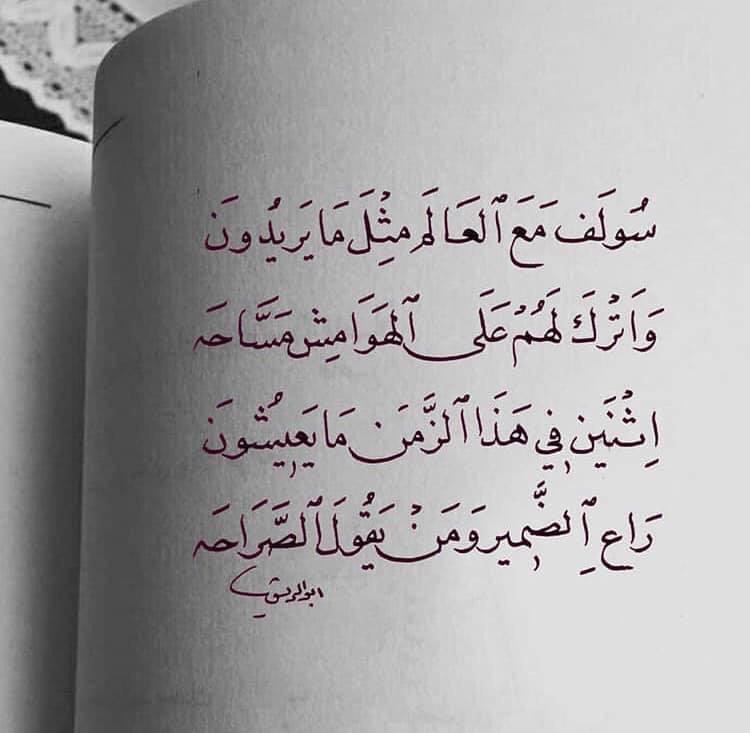 سُولَف مَعَ ٱلعَالَم مِثْلَ مَا يَرِيدُونَ
وَاَتْرَكَ لَهُمْ عَلَى ٱلهَوَامِش مَسَّاحَه
اِثْنَين فِي هَذَا ٱلزَّمَن مَا يَعِيشُونَ
رَاعِ ٱلضَّمِير وَمَنْ يَقُولَ ٱلصَّرَاحَه